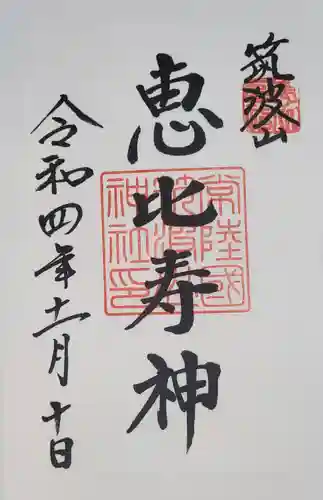 筑波山
恵比寿神
令和四年十一月十日